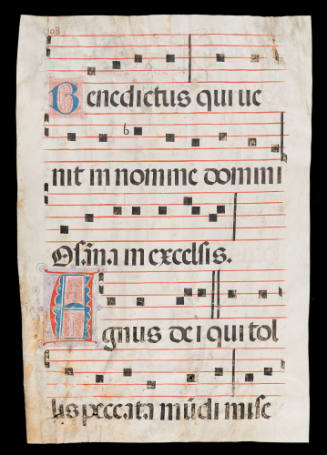 Benedictus qui ue
nit in nomine domini
Osãna in excelsis.
Agnus dei qui tol
lis peccata mũdi mise